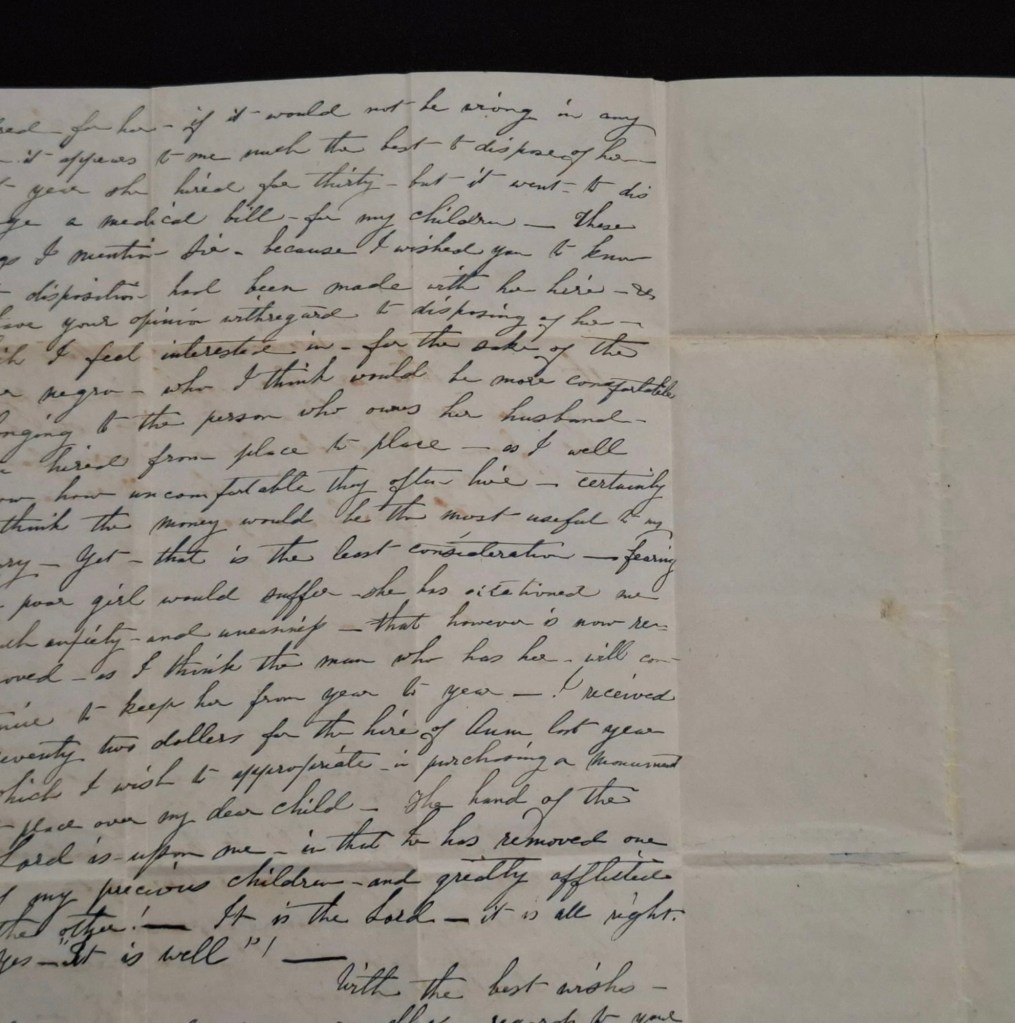 for her - if it would not be wrong in any
- it appears to me much the best - to dispose of her -
year she hired for thirty - but it went - to dis
a medical bill - for my children — These
I mention Sir - because I wished you to know
disposition had been made with her hire -
your opinion withregard to disposing of her -
I feel interested in - for the sake of the
negro - who I think would be more comfortable
to the person who owns her husband -
hired from place to place - as I well
how uncomfortable they often live - certainly
think the money would be the most useful to my
- Yet - that is the least consideration — fearing
poor girl would suffer - she has occationed me
anxiety - and uneasiness - that however is now re-
oved - as I think the man who has her - will con-
to keep her from year to year — I received
seventy two dollars for the hire of Ann last year
which I wish to appropriate - in purchasing a monument
place over my dear child - The hand of the
Lord is upon me - in that he has removed one
of my precious children - and greatly afflicted
the other! — It is the Lord - it is all right.
yes - "It is well"! —
With the best wishes -
regards to your